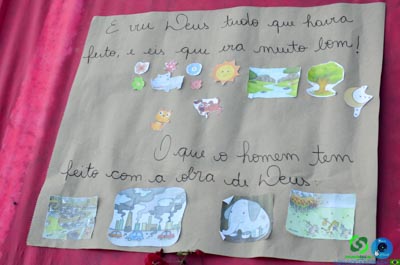 E viu Deus tudo que havia
feito, e eis que era muito bom!
O que o homem tem
feito com a obra de Deus.